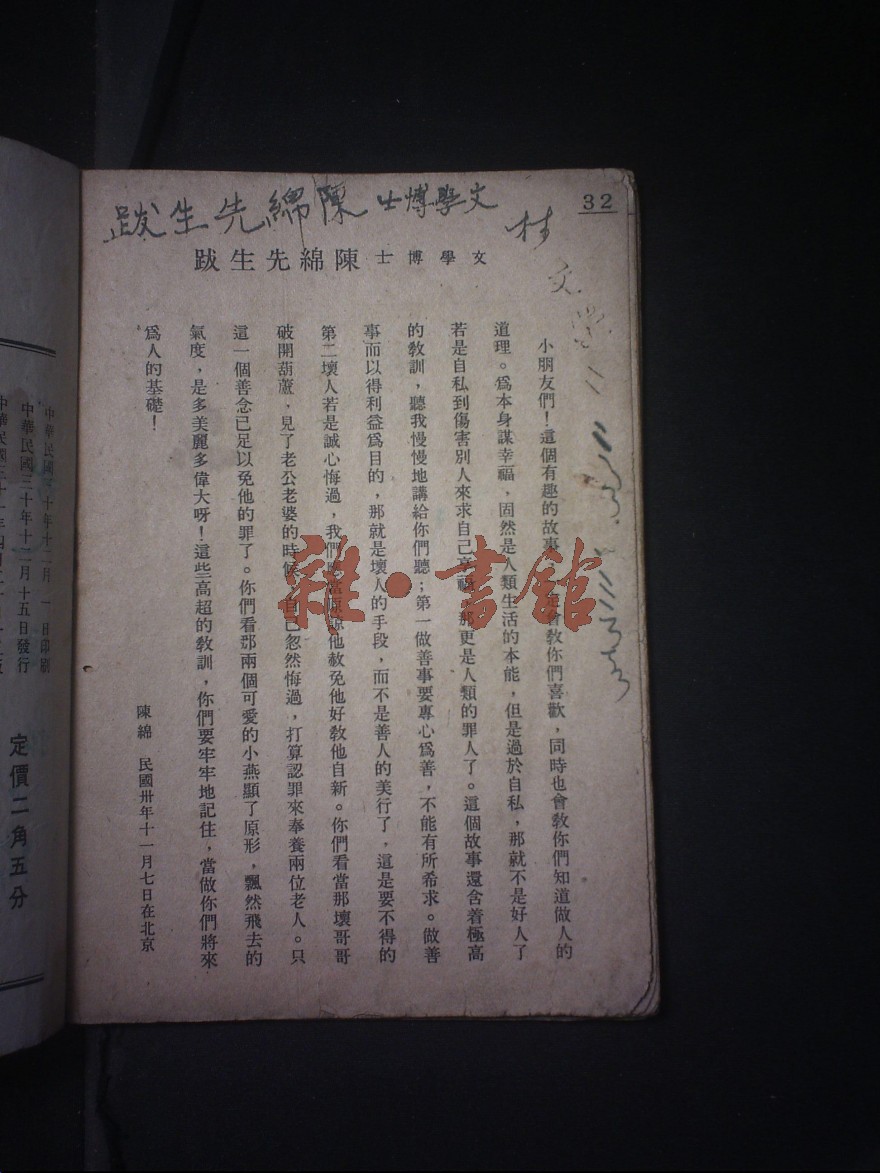 32
文學博士陳綿先生跋
村
文
文學博士陳綿先生跋
小朋友們！這個有趣的故事，定會敎你們喜歡，同時也會敎你們知道做人的
道理。爲本身謀幸福，固然是人類生活的本能，但是過於自私，那就不是好人了
若是自私到傷害別人來求自己幸福，那更是人類的罪人了。這個故事還含着極高
的敎訓，聽我慢慢地講給你們聽；第一做善事要專心爲善，不能有所希求。做善
事而以得利益爲目的，那就是壞人的手段，而不是善人的美行了，這是要不得的
第二壞人若是誠心悔過，我們應當原諒他赦免他好敎他自新。你們看當那壞哥哥
破開葫蘆，見了老公老婆的時候，自己忽然悔過，打算認罪來奉養兩位老人。只
這一個善念已足以免他的罪了。你們看那兩個可愛的小燕顯了原形，飄然飛去的
氣度，是多美麗多偉大呀！這些高超的敎訓，你們要牢牢地記住，當做你們將來
爲人的基礎！
陳綿　民國卅年十一月七日在北京
雜·書館
中華民國三十年十二月一日印刷
中華民國三十年十二月十五日發行
定價二角五分